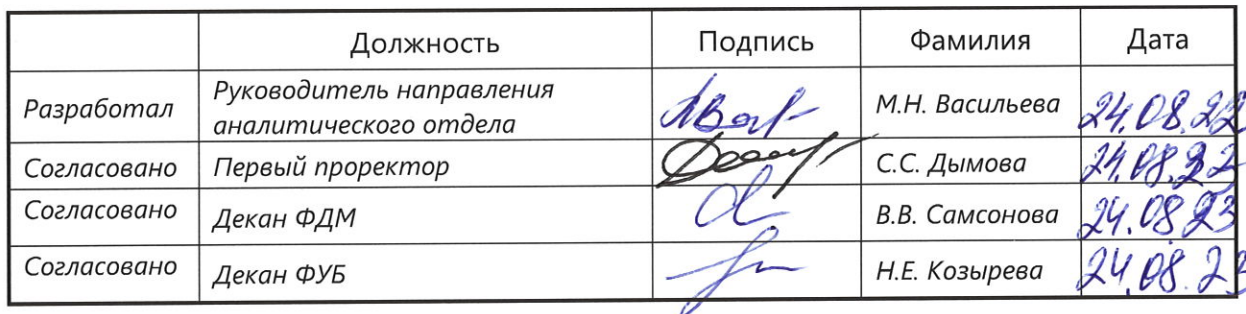 Должность Подпись Фамилия Дата
Разработал Руководитель направления аналитического отдела М.Н. Васильева 24.08.22
Согласовано Первый проректор С.С. Дымова 24.08.
Согласовано Декан ФДМ В.В. Самсонова 24.08 23
Согласовано Декан ФУБ Н.Е. Козырева 24.08.23